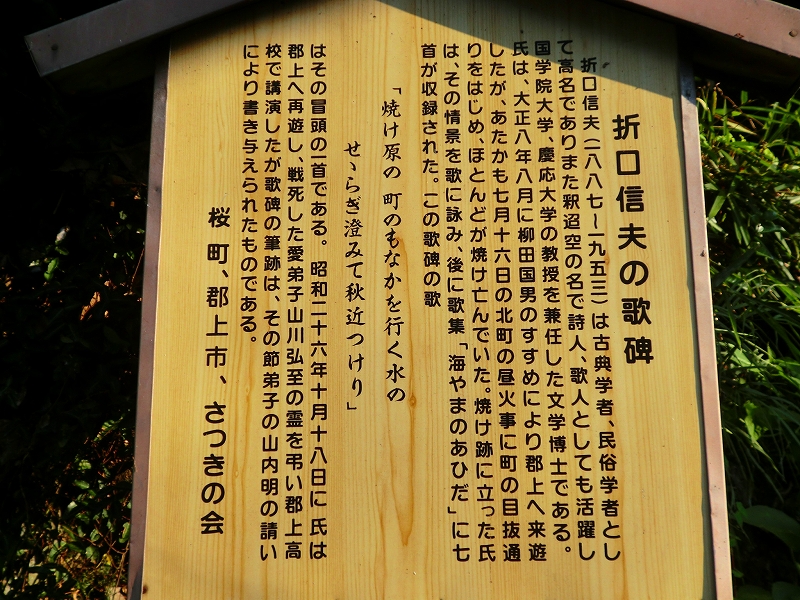 折口信夫の歌碑
折口信夫(一八八七~一九五三)は古典学者、民俗学者とし
て高名でありまた釈迢空の名で詩人、歌人としても活躍し
国学院大学、慶応大学の教授を兼任した文学博士である。
氏は、大正八年八月に柳田国男のすすめにより郡上へ来遊
したが、あたかも七月十六日の北町の昼火事に町の目抜通
りをはじめ、ほとんどが焼け亡んでいた。焼け跡に立った氏
は、その情景を歌に詠み、後に歌集「海やまのあひだ」に七
首が収録された。この歌碑の歌
「焼け原の 町のもなかを行く水の
せゝらぎ澄みて秋近つけり」
はその冒頭の一首である。昭和二十六年十月十八日に 氏は
郡上へ再遊し、戦死した愛弟子山川弘至の霊を弔い郡上高
校で講演したが歌碑の筆跡は、その節弟子の山内明の請い
により書き与えられたものである。
桜町、郡上市、さつきの会